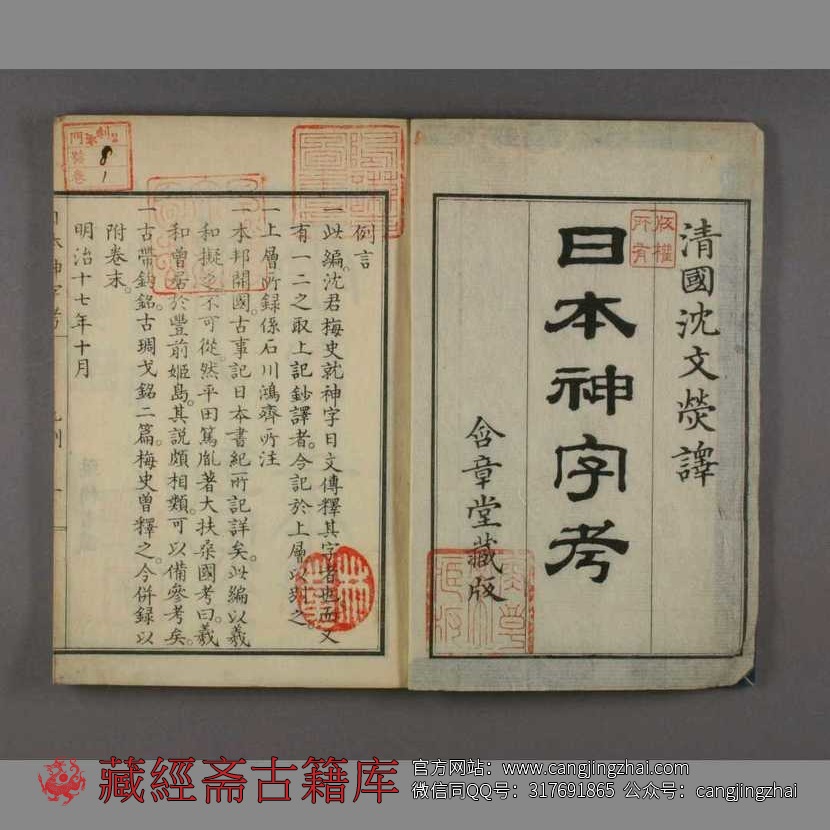 清國沈文熒譯
日本神字考
含章堂藏版
版權
所有
例言
一此編沈君梅史就神字日文傳釋其字者也而又
有一二之取上記鈔譯者今記於上層以別之
一上層所錄係石川鴻齊所注
一本邦開國古事記日本書紀所記詳矣此編以羲
和擬之不可從然平田篤胤著大扶桒國考曰羲
和曾居於豐前姬島其說頗相類可以備參考矣
一古帶鈎銘古琱戈銘二篇梅史曾釋之今併錄以
附卷末
明治十七年十月
8
1
藏經斋古籍库
官方网站：www.cangjingzhai.com
微信同QQ号：317691865 公众号：cangjingzhai